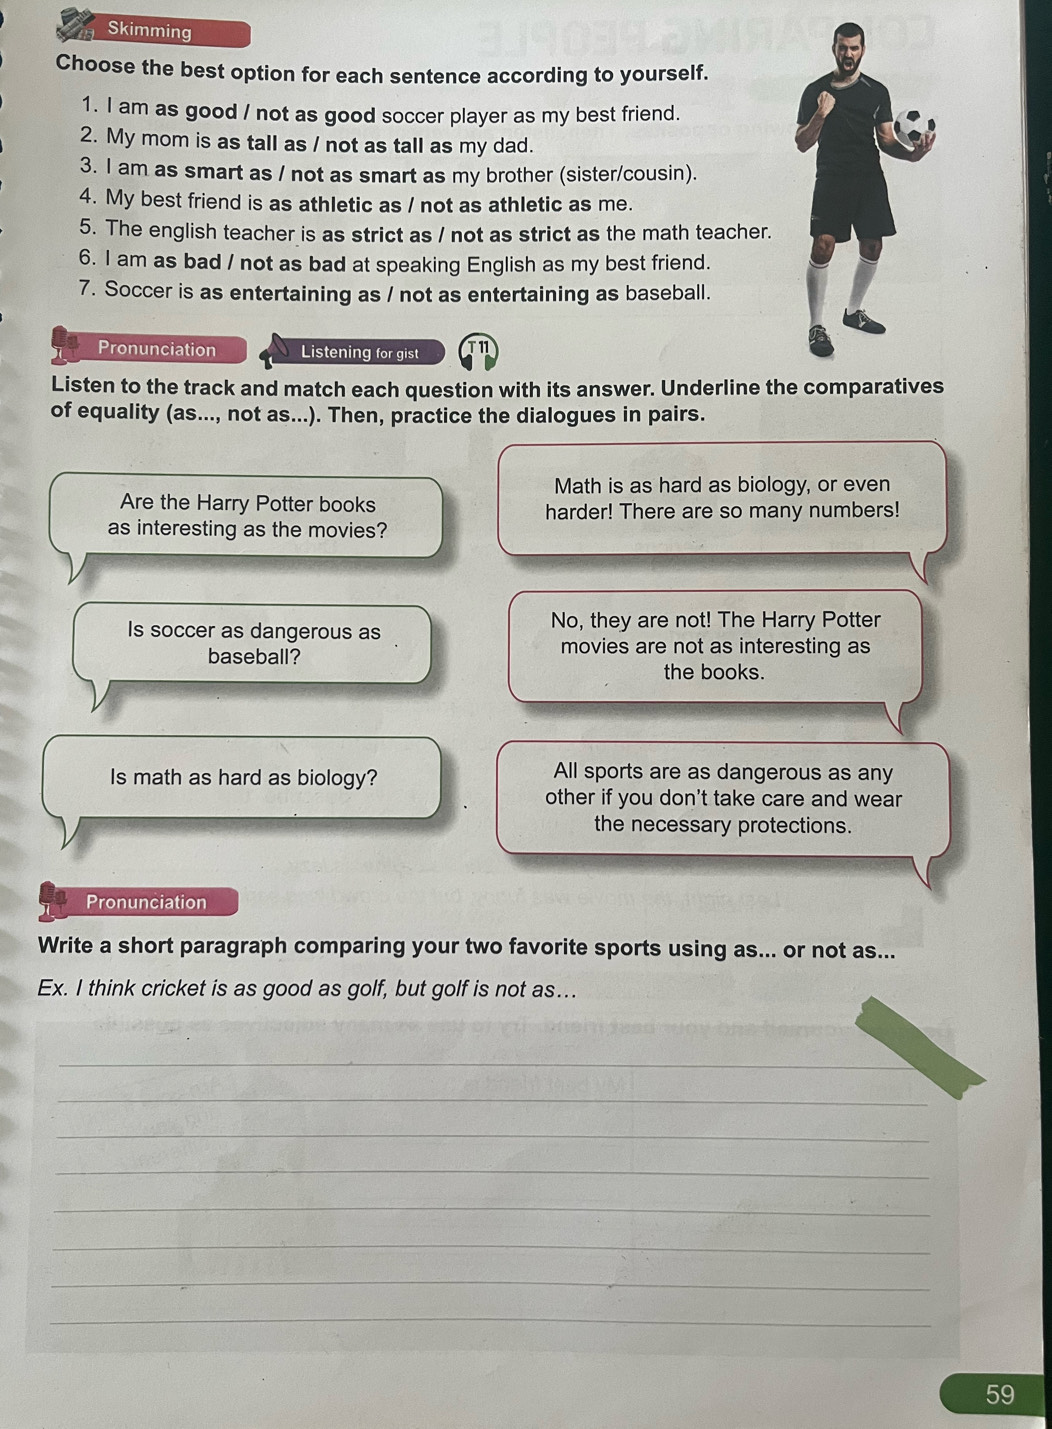 Skimming
Choose the best option for each sentence according to yourself.
1. I am as good / not as good soccer player as my best friend.
2. My mom is as tall as / not as tall as my dad.
3. I am as smart as / not as smart as my brother (sister/cousin).
4. My best friend is as athletic as / not as athletic as me.
5. The english teacher is as strict as / not as strict as the math teacher.
6. I am as bad / not as bad at speaking English as my best friend.
7. Soccer is as entertaining as / not as entertaining as baseball.
Pronunciation
Listening for gist
T 11
Listen to the track and match each question with its answer. Underline the comparatives
of equality (as..., not as...). Then, practice the dialogues in pairs.
Are the Harry Potter books
as interesting as the movies?
Math is as hard as biology, or even
harder! There are so many numbers!
Is soccer as dangerous as
baseball?
No, they are not! The Harry Potter
movies are not as interesting as
the books.
Is math as hard as biology?
All sports are as dangerous as any
other if you don't take care and wear
the necessary protections.
Pronunciation
Write a short paragraph comparing your two favorite sports using as... or not as...
Ex. I think cricket is as good as golf, but golf is not as...
59